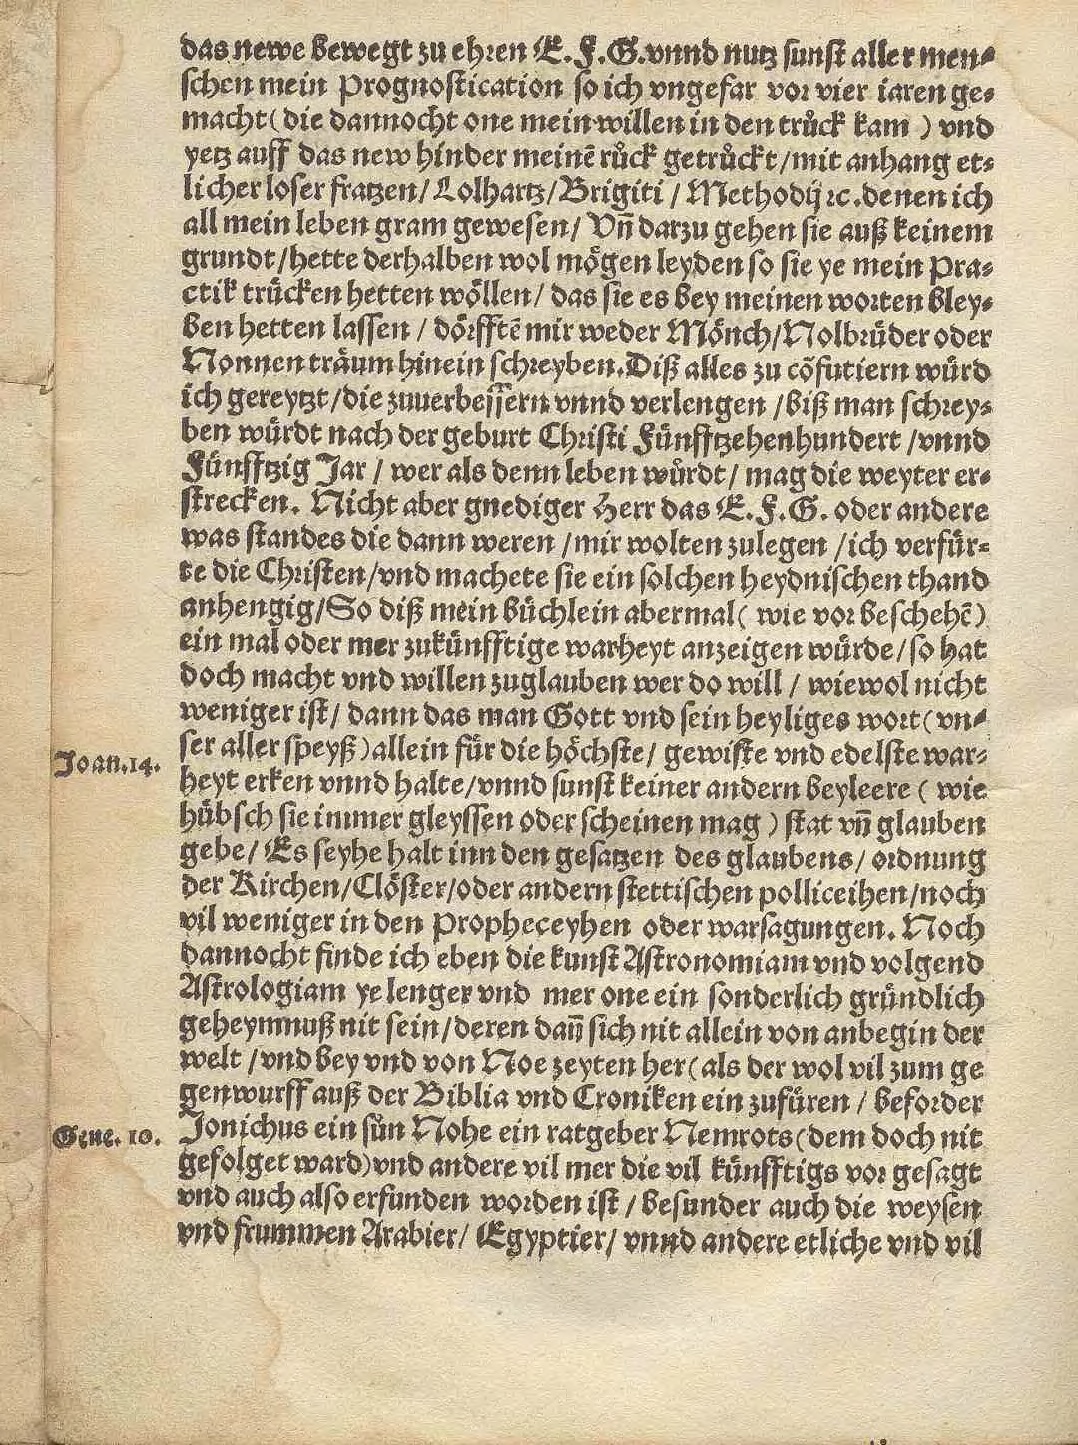 das newe bewegt zu ehren E. F. G. vnnd nutz sunst aller men⸗
schen mein Prognostication so ich vngefar vor vier iaren ge⸗
macht (die dannocht one mein willen in den truͤck kam) vnd
yetz auff das new hinder meinē ruͤck getruͤckt/mit anhang et⸗
licher loser fratzen/ Lolhartz/Brigiti/ Methodij ꝛc. denen ich
all mein leben gram gewesen/ Vñ darzu gehen sie auß keinem
grundt/hette derhalben wol moͤgen leyden so sie ye mein Pra⸗
ctik truͤcken hetten woͤllen/ das sie es bey meinen worten bley⸗
ben hetten lassen/ doͤrfftē mir weder Moͤnch/Nolbruͤder oder
Nonnen traͤum hinein schreyben. Diß alles zu cōfutiern wuͤrd
ich gereytzt/die zuuerbessern vnnd verlengen/biß man schrey⸗
ben wuͤrdt nach der geburt Christi Fuͤnfftzehenhundert/vnnd
Fuͤnfftzig Jar/ wer als denn leben wuͤrdt/ mag die weyter er⸗
strecken. Nicht aber gnediger Herr das E. F. G. oder andere
was standes die dann weren/mir wolten zulegen/ich verfuͤr⸗
te die Christen/vnd machete sie ein solchen heydnischen thand
anhengig/So diß mein buͤchlein abermal (wie vor beschehē)
ein mal oder mer zukuͤnfftige warheyt anzeigen wuͤrde/so hat
doch macht vnd willen zuglauben wer do will/ wiewol nicht
weniger ist/ dann das man Gott vnd sein heyliges wort (vn⸗
ser aller speyß) allein fuͤr die hoͤchste/ gewiste vnd edelste war⸗
Joan. 14.
heyt erken vnnd halte/vnnd sunst keiner andern beyleere (wie
huͤbsch sie immer gleyssen oder scheinen mag) stat vñ glauben
gebe/ Es seyhe halt inn den gesatzen des glaubens/ ordnung
der Kirchen/Cloͤster/oder andern stettischen polliceihen/noch
vil weniger in den Propheceyhen oder warsagungen. Noch
dannocht finde ich eben die kunst Astronomiam vnd volgend
Astrologiam ye lenger vnd mer one ein sonderlich gruͤndlich
geheymnuß nit sein/deren dañ sich nit allein von anbegin der
welt/vnd bey vnd von Noe zeyten her (als der wol vil zum ge
genwurff auß der Biblia vnd Croniken ein zufuͤren/ beforder
Gene. 10.
Jonichus ein suͤn Nohe ein ratgeber Nemrots (dem doch nit
gefolget ward) vnd andere vil mer die vil kuͤnfftigs vor gesagt
vnd auch also erfunden worden ist/ besunder auch die weysen
vnd frummen Arabier/ Egyptier/ vnnd andere etliche vnd vil